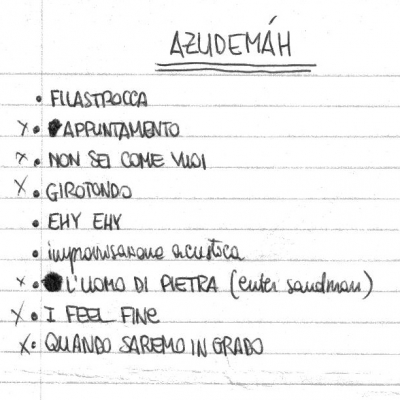 AZUDEMÁH
• FILASTROCCA
x • APPUNTAMENTO
x • NON SEI COME VUOI
x • GIROTONDO
• EHY EHY
• improvvisazione acustica
x • L'UOMO DI PIETRA (enter sandman)
x • I FEEL FINE
x • QUANDO SAREMO IN GRADO